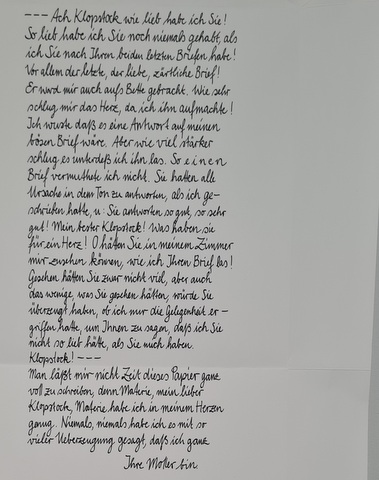 --- Ach Klopstock wie lieb habe ich Sie!
So lieb habe ich Sie noch niemals gehabt, als
ich Sie nach Ihren beiden letzten Briefen habe!
Vor allem der letzte, der liebe, zärtliche Brief!
Er ward mir auch aufs Bette gebracht. Wie sehr
schlug mir das Herz, da ich ihn aufmachte!
Ich wuste daß es eine Antwort auf meinen
bösen Brief wäre. Aber wie viel stärker
schlug es unterdeß ich ihn las. So einen
Brief vermuthete ich nicht. Sie hatten alle
Ursache in dem Ton zu antworten, als ich ge-
schrieben hatte, u: Sie antworten so gut, so sehr
gut! Mein bester Klopstock! Was haben sie
für ein Herz! O hätten Sie in meinem Zimmer
mir zusehen können, wie ich Ihren Brief las!
Gesehen hätten Sie zwar nicht viel, aber auch
das wenige, was Sie gesehen hätten, würde Sie
überzeugt haben, ob ich nur die Gelegenheit er-
griffen hätte, um Ihnen zu sagen, daß ich Sie
nicht so lieb hätte, als Sie mich haben.
Klopstock! ---
Man läßt mir nicht Zeit dieses Papier ganz
voll zu schreiben, denn Materie, mein lieber
Klopstock, Materie habe ich in meinem Herzen
genug. Niemals, niemals habe ich es mit so
vieler Ueberzeugung gesagt, daß ich ganz
Ihre Moller bin